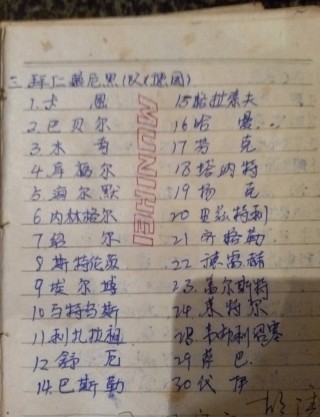 三. 拜仁慕尼黑(德国)
MUNIHEI
1. 卡 恩
2. 巴贝尔
3. 木
4. 库福尔
5. 海尔默
6 内林格尔
7 绍 尔
8 斯特伦茨
9 埃尔堡
10 马特乌斯
11 利扎拉祖
12 舒 厄
14. 巴斯勒
15 哈拉索夫
16 哈 曼...
17 劳 克
18 塔纳特
19 扬 克
20 里兹特利
21 齐格勒
22 德雷赫
23. 盖尔斯特
24. 莱特尔
28.
29 萨 巴
30 代 伊